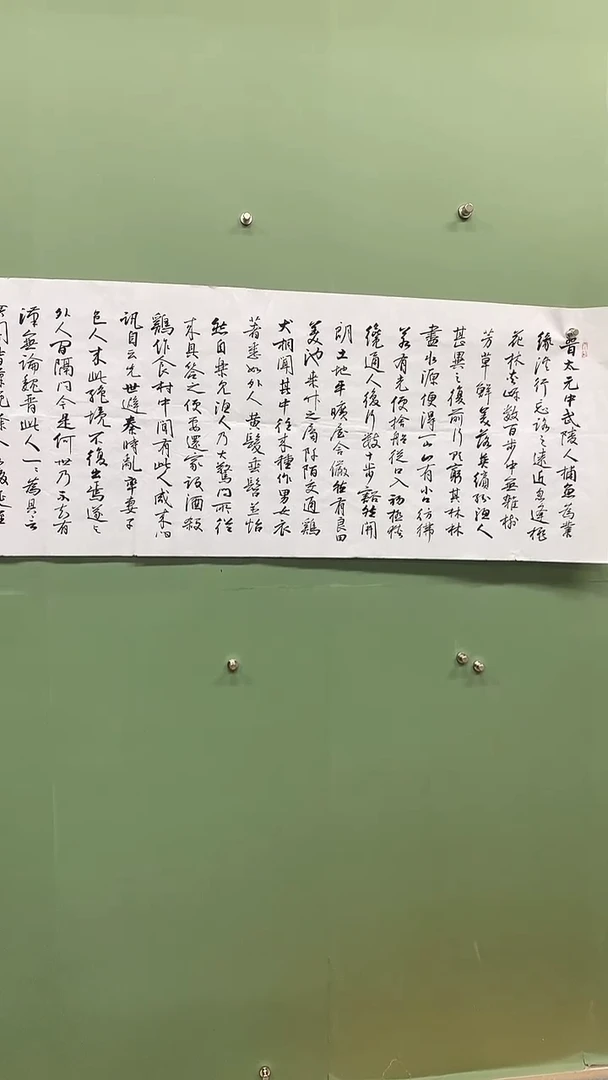 晉太元中武陵人捕魚為業
緣溪行忘路之遠近忽逢桃
花林夾岸數百步中無雜樹
芳草鮮美落英繽紛漁人
甚異之復前行欲窮其林林
盡水源便得一山山有小口彷彿
若有光便捨船從口入初極狹
纔通人復行數十步豁然開
朗土地平曠屋舍儼然有良田
美池桑竹之屬阡陌交通鷄
犬相聞其中往來種作男女衣
著悉如外人黃髮垂髫並怡
然自樂見漁人乃大驚問所從
來具答之便要還家設酒殺
鷄作食村中聞有此人咸來問
訊自云先世避秦時亂率妻子
邑人來此絕境不復出焉遂與
外人間隔問今是何世乃不知有
漢無論魏晉此人一一為具言